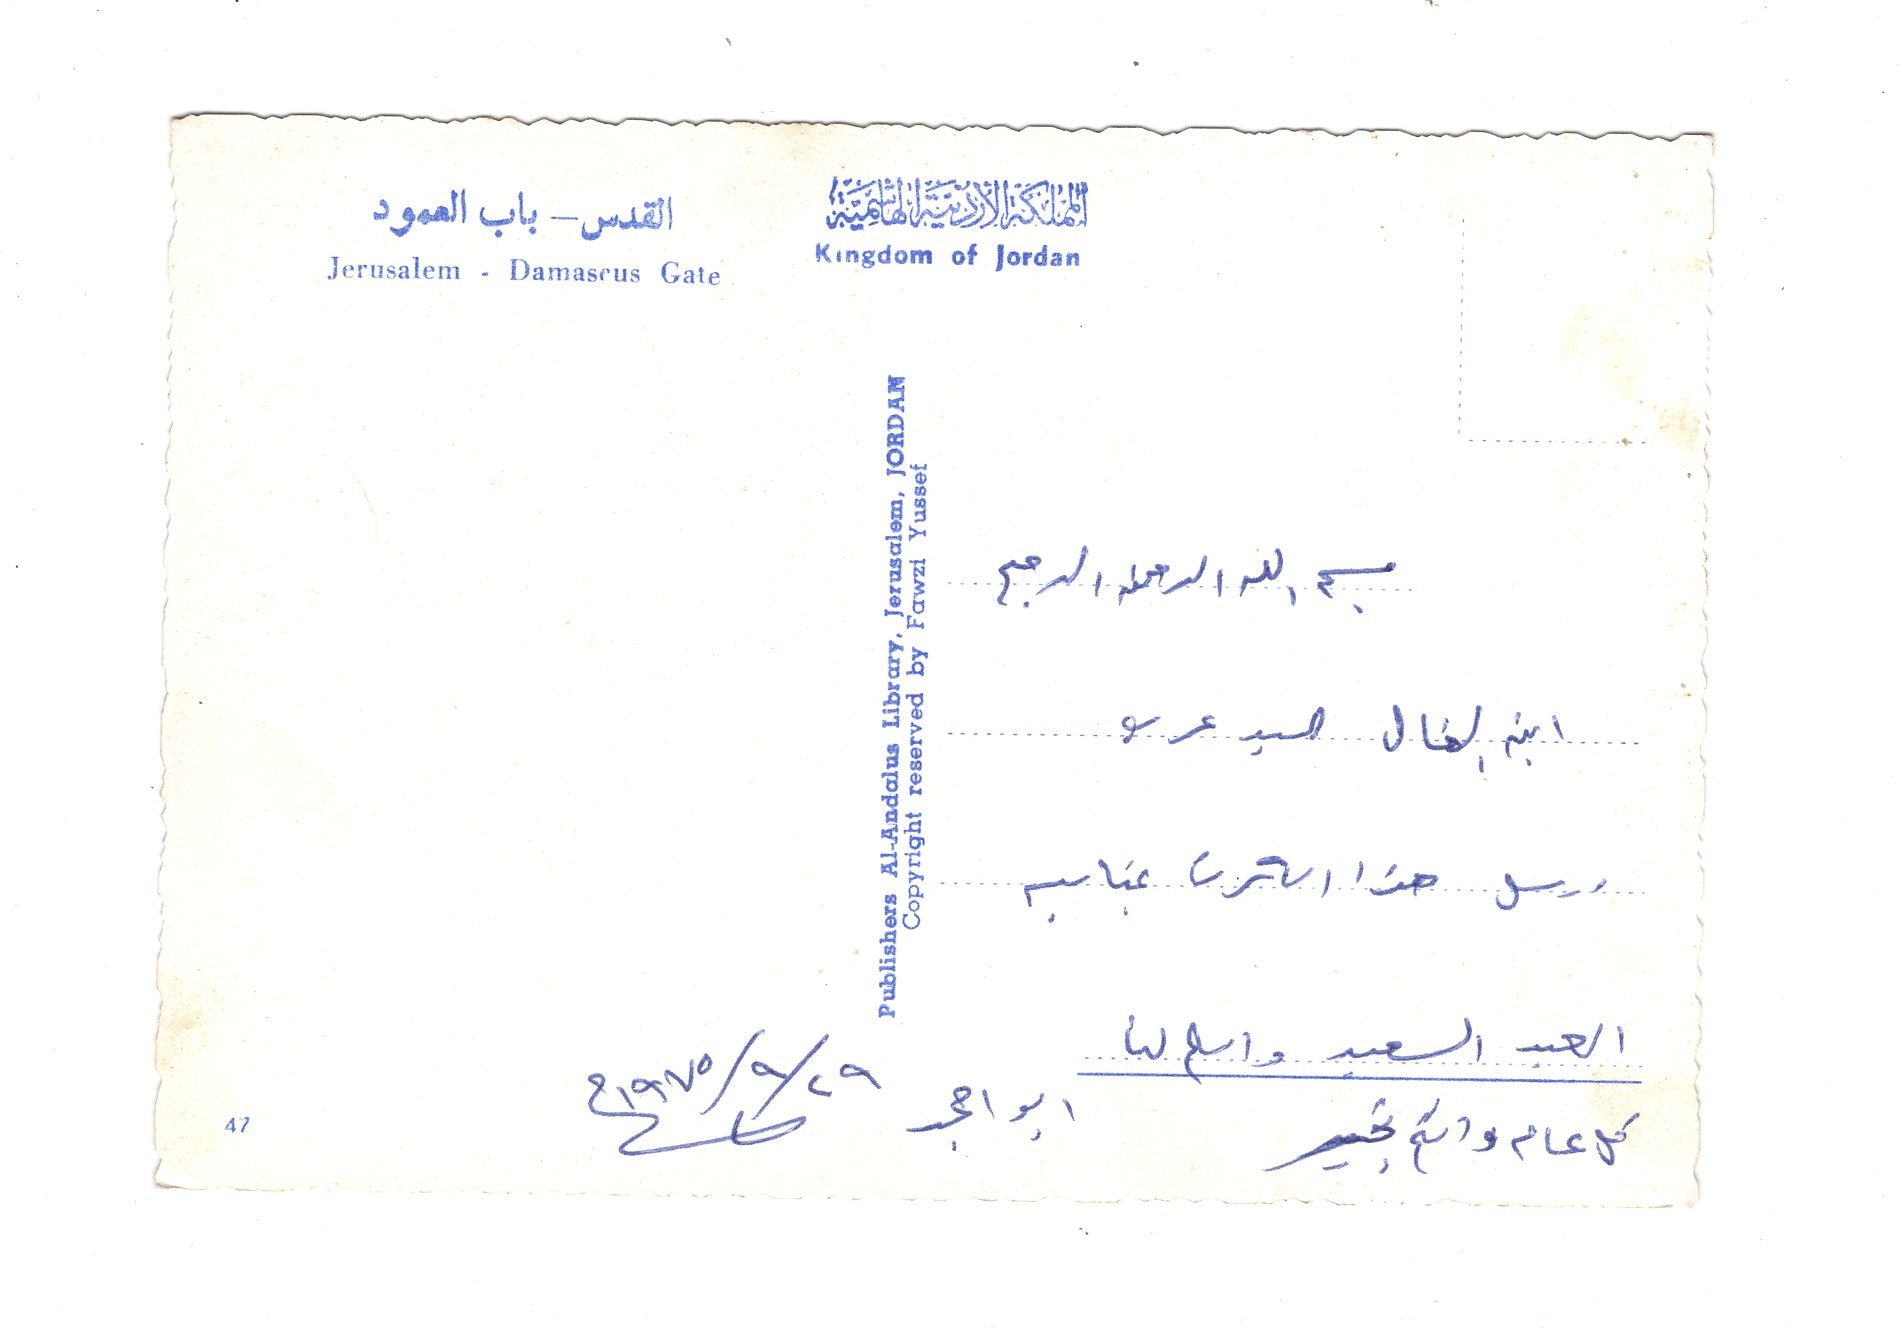 القدس – باب العمود
Jerusalem - Damascus Gate
المملكة الأردنية الهاشمية
Kingdom of Jordan
Publishers Al-Andalus Library, Jerusalem, JORDAN
Copyright reserved by Fawzi Yussef
بسم الله الرحمن الرحيم
ابن الخال السيد
نرسل هذا الكرت بمناسبة
العيد السعيد واسلم لنا
كل عام وانتم بخير
ابو امجد
٢٩/٩/١٩٧٥م
47